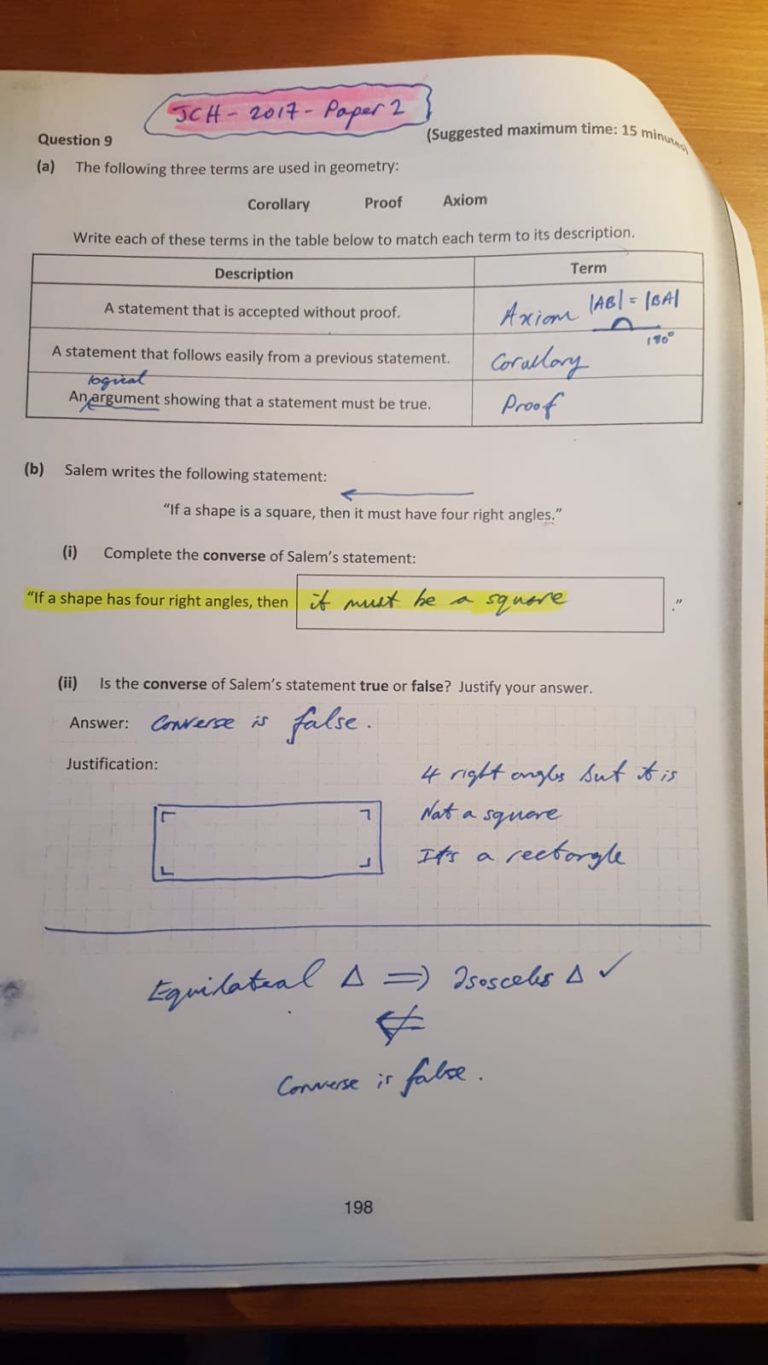 JCH - 2017 - Paper 2
Question 9
(Suggested maximum time: 15 minutes)
(a) The following three terms are used in geometry:
Corollary Proof Axiom
Write each of these terms in the table below to match each term to its description.
Description Term
A statement that is accepted without proof. Axiom |AB| = |BA|
180°
A statement that follows easily from a previous statement. Corallary
logical
An argument showing that a statement must be true. Proof
(b) Salem writes the following statement:
“If a shape is a square, then it must have four right angles.”
(i) Complete the converse of Salem’s statement:
“If a shape has four right angles, then it must be a square .”
(ii) Is the converse of Salem’s statement true or false? Justify your answer.
Answer: Converse is false.
Justification:
4 right angles but it is
Not a square
It's a rectangle
Equilateral Δ ⇒ Isosceles Δ ✓
⇍
Converse is false.
198